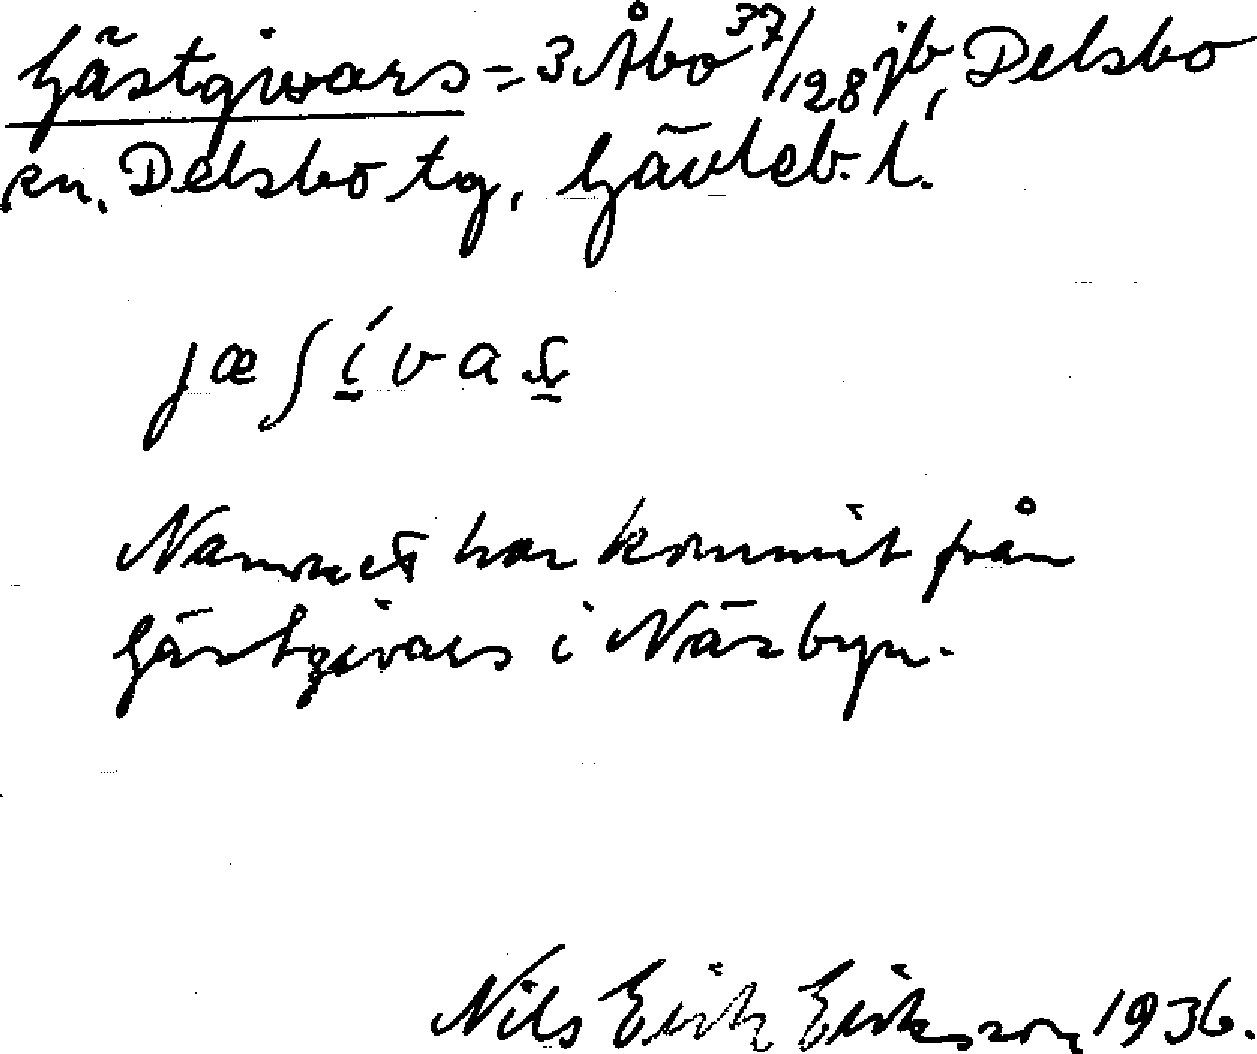 Gästgivars = 3 Åbo 37/128 jb, Delsbo
sn, Delsbo tg, Gävleb. l.
jæʃi̠vas̠
Namnet har kommit från
Gästgivars i Näsbyn.
Nils Erik Eriksson, 1936.